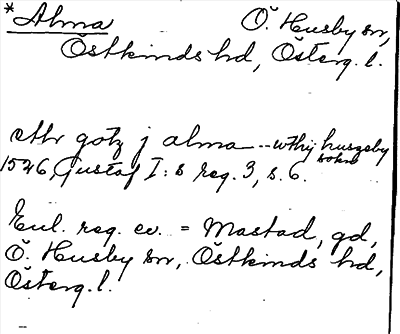 * Alma Ö. Husby sn,
Östkinds hd, Österg. l.
ett gotz j alma -- wthj huszeby sokn
1526, Gustaf I:s reg. 3, s. 6.
Enl. reg. ev. = Mastad, gd,
Ö. Husby sn, Östkinds hd,
Österg. l.